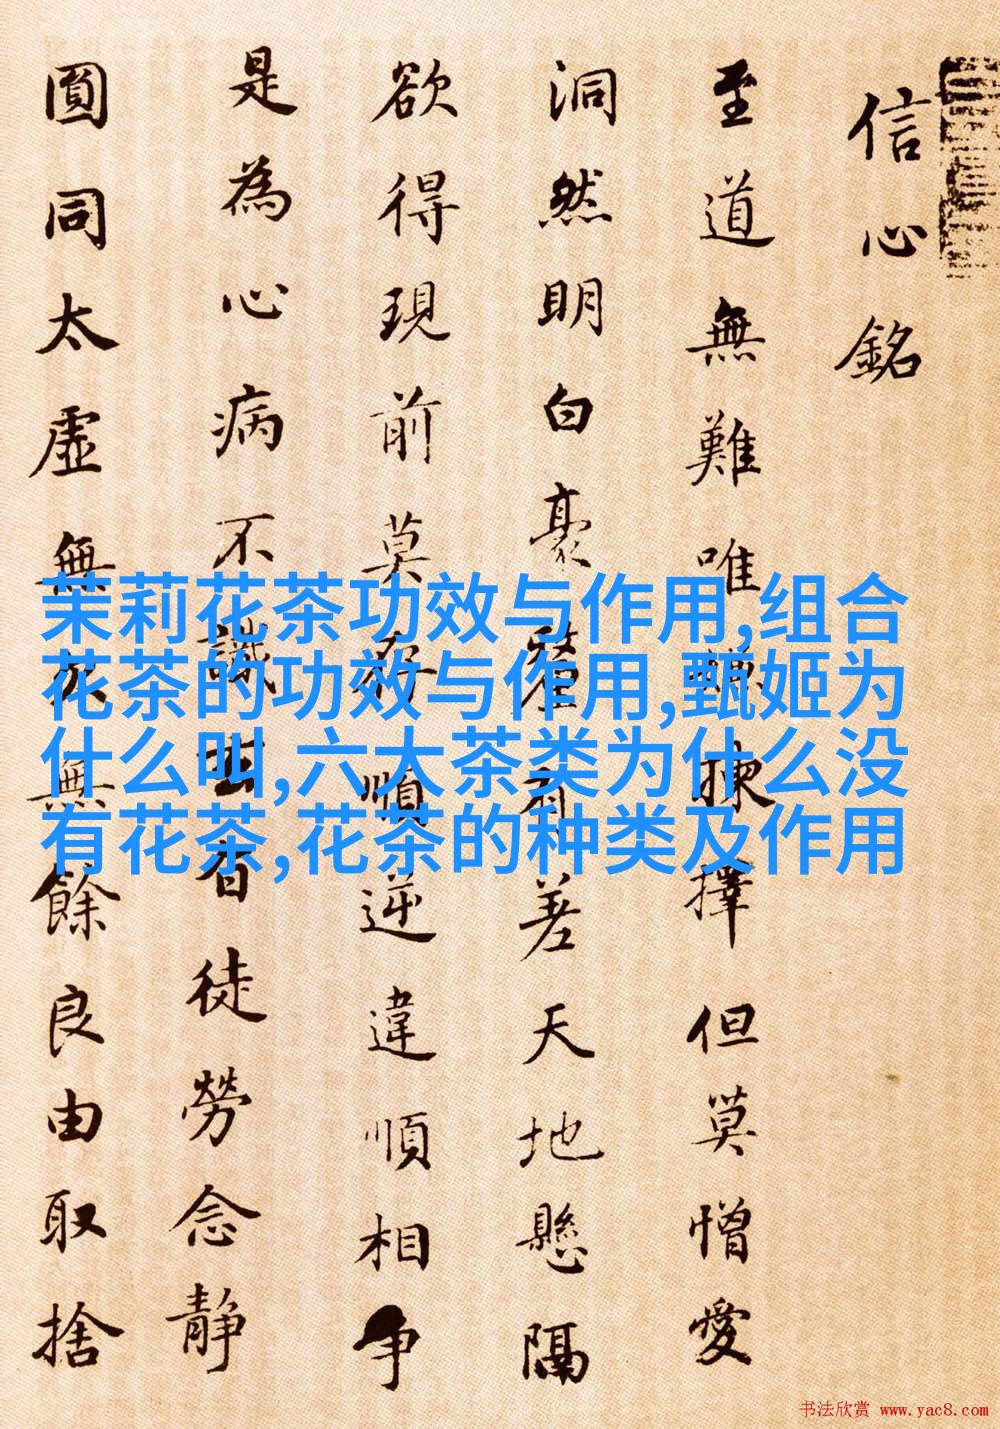 信心銘
至道無難唯嫌揀擇但莫憎愛
洞然明白豪釐有差天地懸隔
欲得現前莫存順逆違順相争
是為心病不識玄旨徒勞念静
圓同太虛無欠無餘良由取捨
茉莉花茶功效与作用,组合
花茶的功效与作用,甄姬为
什么叫,六大茶类为什么没
有花茶,花茶的种类及作用
书法欣赏 www.yac8.com